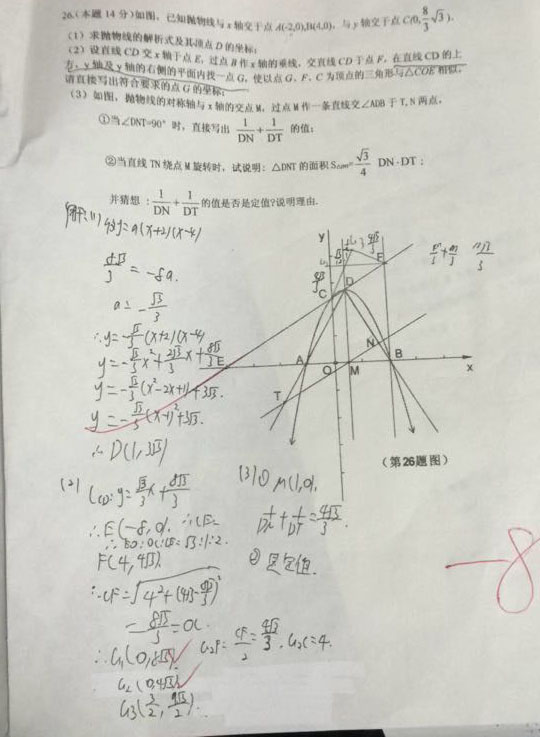 26.(本题 14 分)如图, 已知抛物线与 x 轴交于点 A(-2,0),B(4,0), 与 y 轴交于点 C(0, 8/3 √3).
(1) 求抛物线的解析式及其顶点 D 的坐标;
(2) 设直线 CD 交 x 轴于点 E, 过点 B 作 x 轴的垂线, 交直线 CD 于点 F, 在直线 CD 的上
方, y 轴及 y 轴的右侧的平面内找一点 G, 使以点 G、F、C 为顶点的三角形与△COE 相似,
请直接写出符合要求的点 G 的坐标;
(3) 如图, 抛物线的对称轴与 x 轴的交点 M, 过点 M 作一条直线交∠ADB 于 T,N 两点,
①当∠DNT=90° 时, 直接写出 1/DN + 1/DT 的值;
②当直线 TN 绕点 M 旋转时, 试说明: △DNT 的面积 S△DNT= √3/4 DN·DT;
并猜想: 1/DN + 1/DT 的值是否是定值?说明理由.
解:(1) 设y=a(x+2)(x-4)
8√3/3 = -8a.
a= -√3/3
∴y=-√3/3(x+2)(x-4)
y=-√3/3x²+2√3/3x+8√3/3
y=-√3/3(x²-2x+1)+3√3.
y=-√3/3(x-1)²+3√3.
∴D(1,3√3)
(2) LCD:y=√3/3x+8√3/3
∴E(-8,0).
∴EO:OC:CE=√3:1:2.
F(4,4√3).
∴CF=
8√3/3=OC.
∴G₁(0,8√3).
G₂(0,4√3).
G₃(3/2,9√3/2).
G₂F=CF/2=4√3/3. G₂C=4.
(3)① M(1,0).
1/DN+1/DT=4√3/3.
② 是定值.
y
F
D
C
E
A
O
M
N
B
x
T
(第26题图)
-8